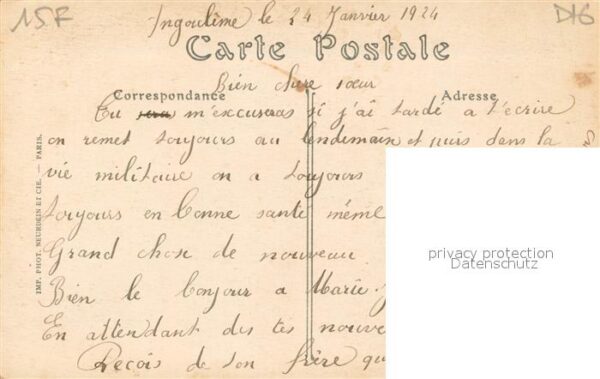 15F
D16
Angoulême le 24 Janvier 1924
Carte Postale
Bien chere sœur
Correspondance
Adresse
Tu m'excuseras si j'ai tardé a t'ecrire
on remet toujours au lendemain et puis dans la
vie militaire on a toujours
toujours en bonne santé même
Grand chose de nouveau
Bien le bonjour a Marie
En attendant des tes nouve
Reçois de ton frère qu
IMP. PHOT. NEURDEIN ET CIE. — PARIS.
privacy protection
Datenschutz